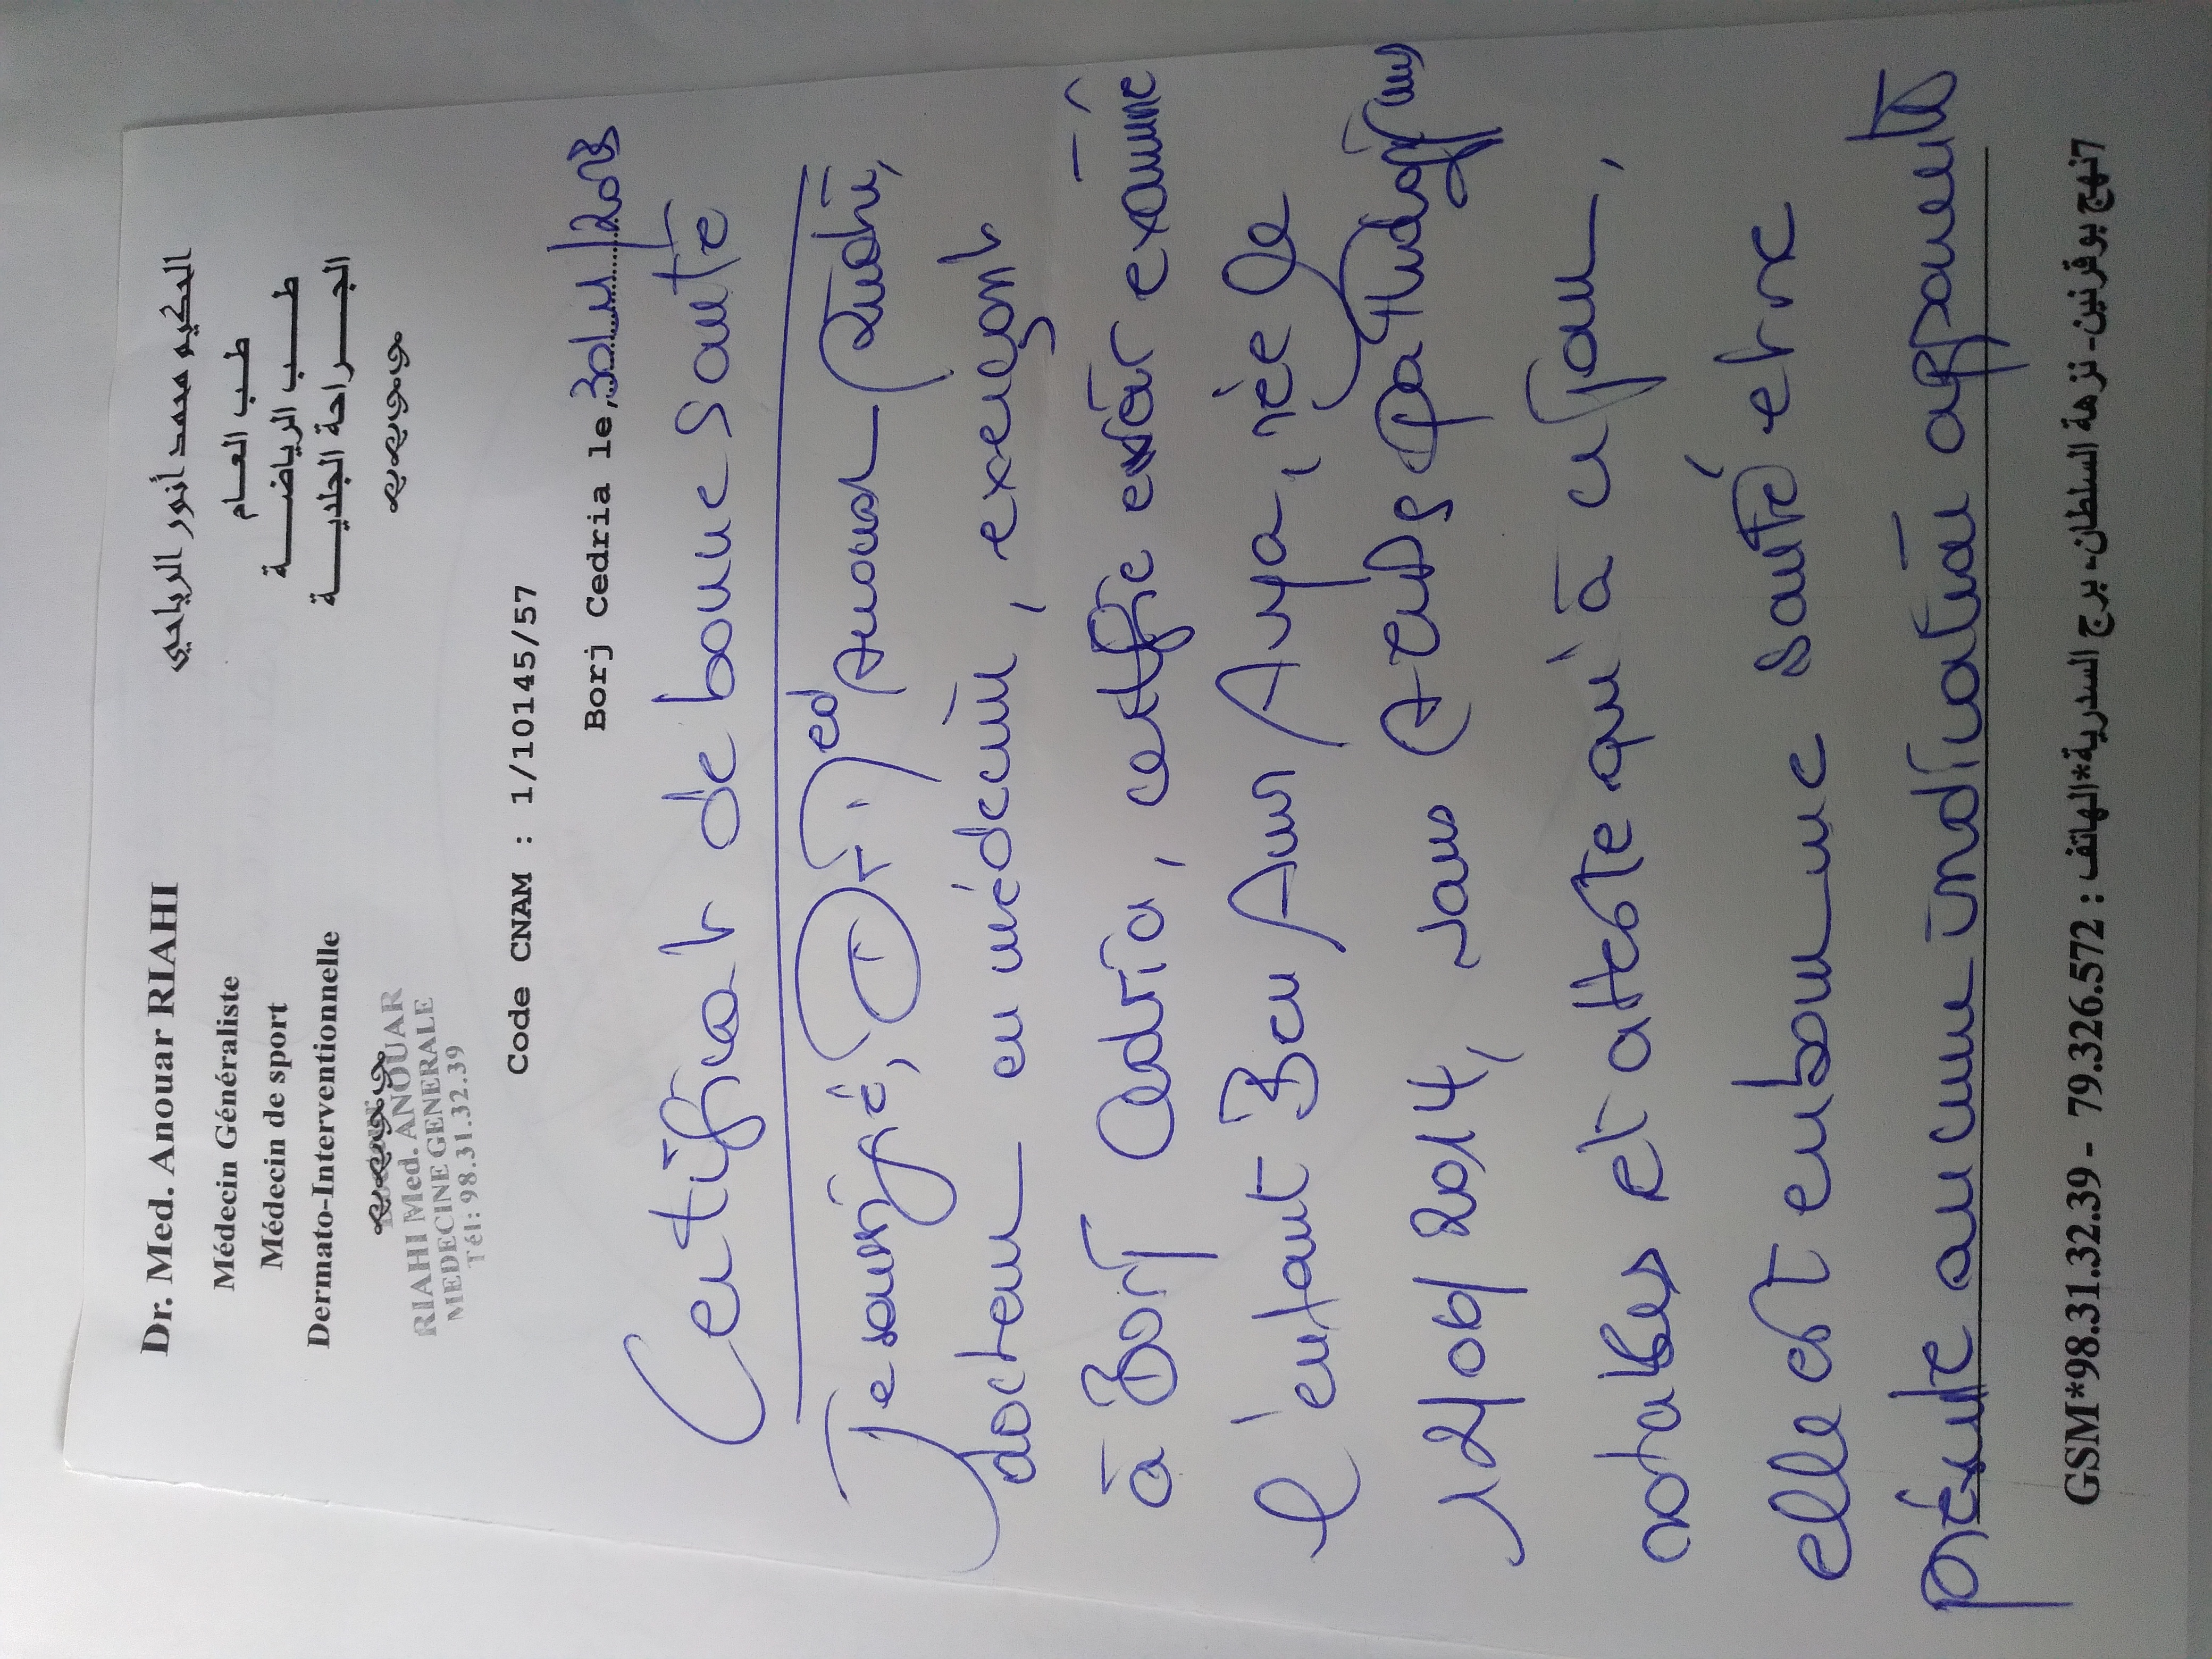 Dr. Med. Anouar RIAHI
Médecin Généraliste
Médecin de sport
Dermato-Interventionnelle
RIAHI Med. ANOUAR
MEDECINE GENERALE
Tél: 98.31.32.39
الحكيم محمد أنور الرياحي
طب العام
طب الرياضة
الجراحة الجلدية
Code CNAM : 1/10145/57
Borj Cedria le,
Certificat de bonne santé
Je soussigné, Dr. Med Anouar Riahi,
docteur en médecine, exerçant
à Borj Cedria, certifie avoir examiné
l'enfant Ben Amr Aya, née le
12/06/2014, sans ATCDS pathologiques
notables et atteste qui à ce jour,
elle est en bonne santé et ne
présente aucune indication apparente
GSM*98.31.32.39 - 79.326.572 : 7نهج بوقرنين- نزهة السلطان- برج السدرية*الهاتف